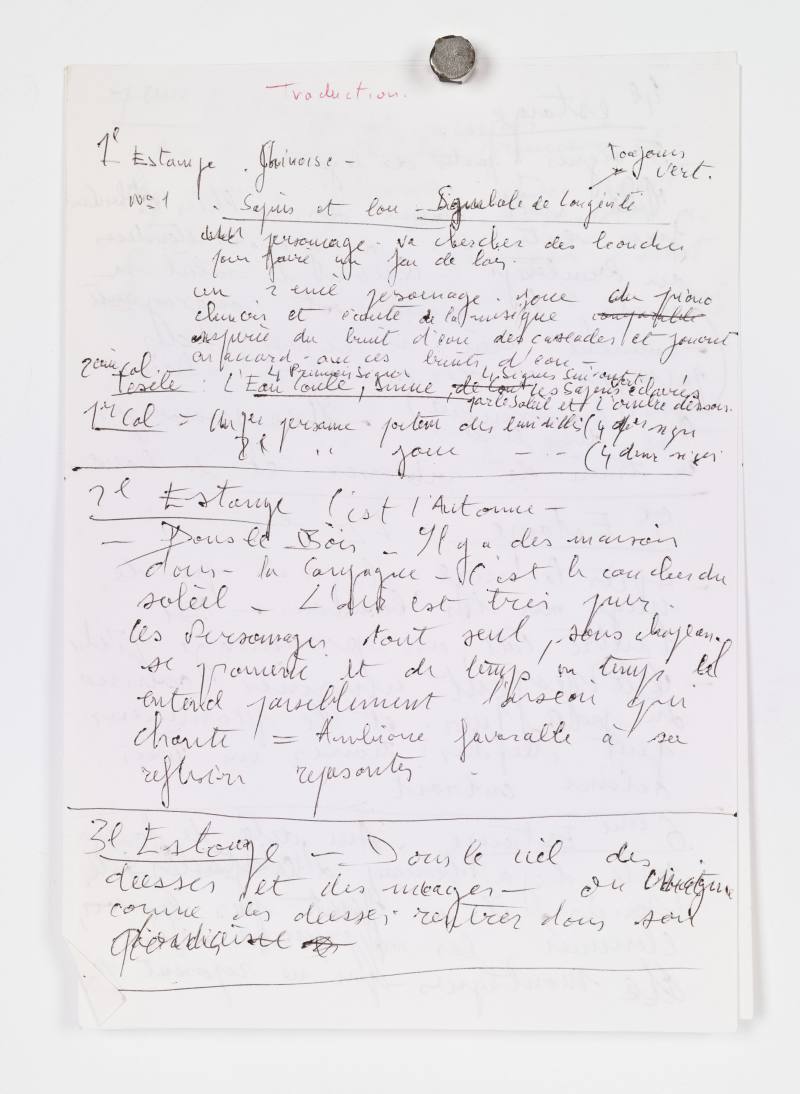 Traduction.
1e Estampe Chinoise -
Toujours
vert.
No 1 . Sapins et eau - Symbole de Longévité
personnage - va chercher des
pour faire un feu de bois.
un 2 emé personage. joue du piano
chinois et écoute de la musique
inspirée du bruit d'eau des cascades et jouant
en accord - avec ces bruits d'eau -
2eme Col. 4 Premiers Signes 4 Signes Suivant
: L'Eau Coule, , les Sapins vert éclairés
par le Soleil et l'ombre dessous.
1er Col = Un 1er persone portent des (4 1er sign
2e " joue - - - (4
2e Estampe C'est l'Automne -
- Dans le Bois - Il y a des maisons
dans - la Campagne - C'est le coucher du
soleil - L'air est tres pur.
Ces Personages tout seul, sans chapeau.
se promene et de temps en temps il
entend paisiblement l'oiseau qui
chante = Ambiance favorable à sa
reflexion reposante
3e Estampe - Dans le ciel des
deesses et des nuages - on
comme des deesses rentrer dans son